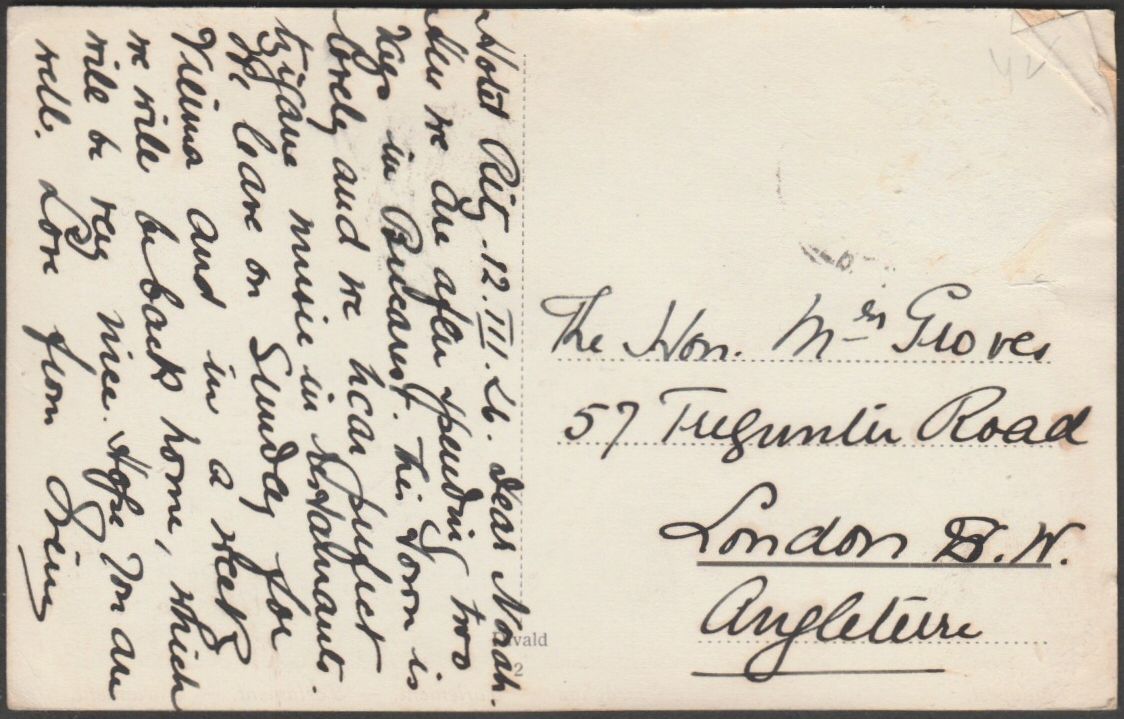 Hotel Ritz. 12.III.26. Dear Norah.
Here we are after spending two
days in Bucarest. This town is
lovely and we hear perfect
tzigane music in restaurants.
We leave on Sunday for
Vienna and in a week
we will be back home, which
will be very nice. Hope you are
well. Love from Irene
The Hon. Mrs Groves
57 Tregunter Road
London S.W.
Angleterre